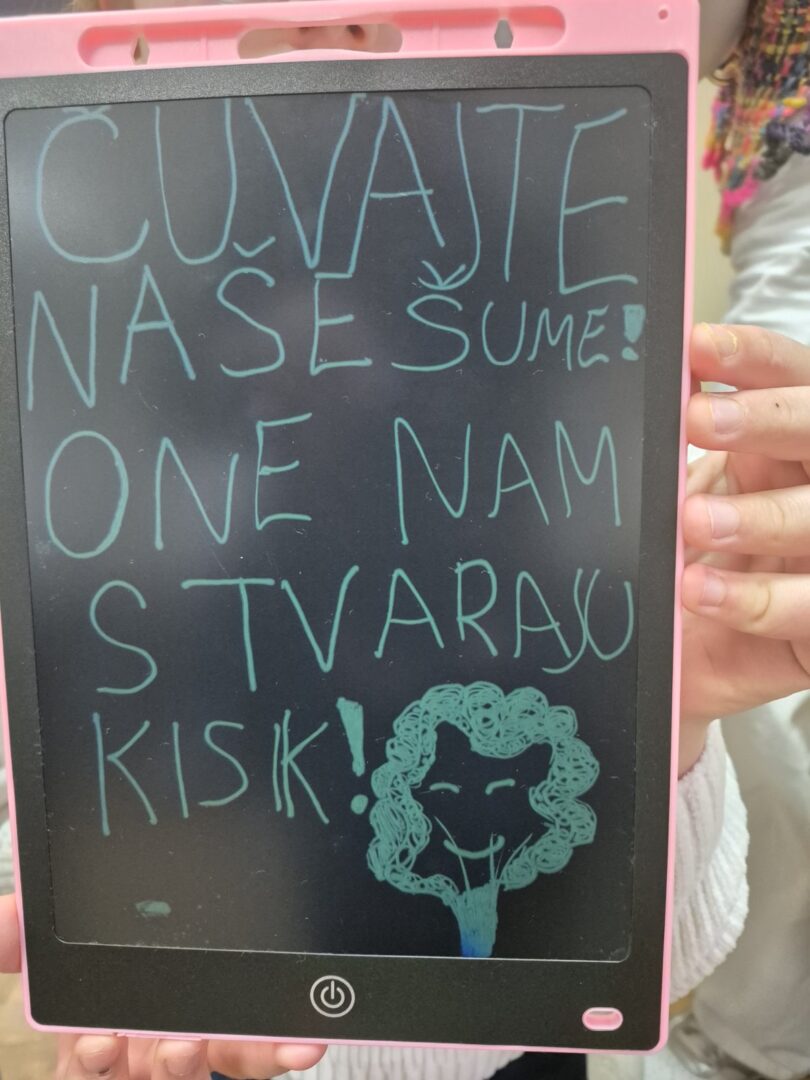 ČUVAJTE
NAŠE ŠUME!
ONE NAM
STVARAJU
KISIK!